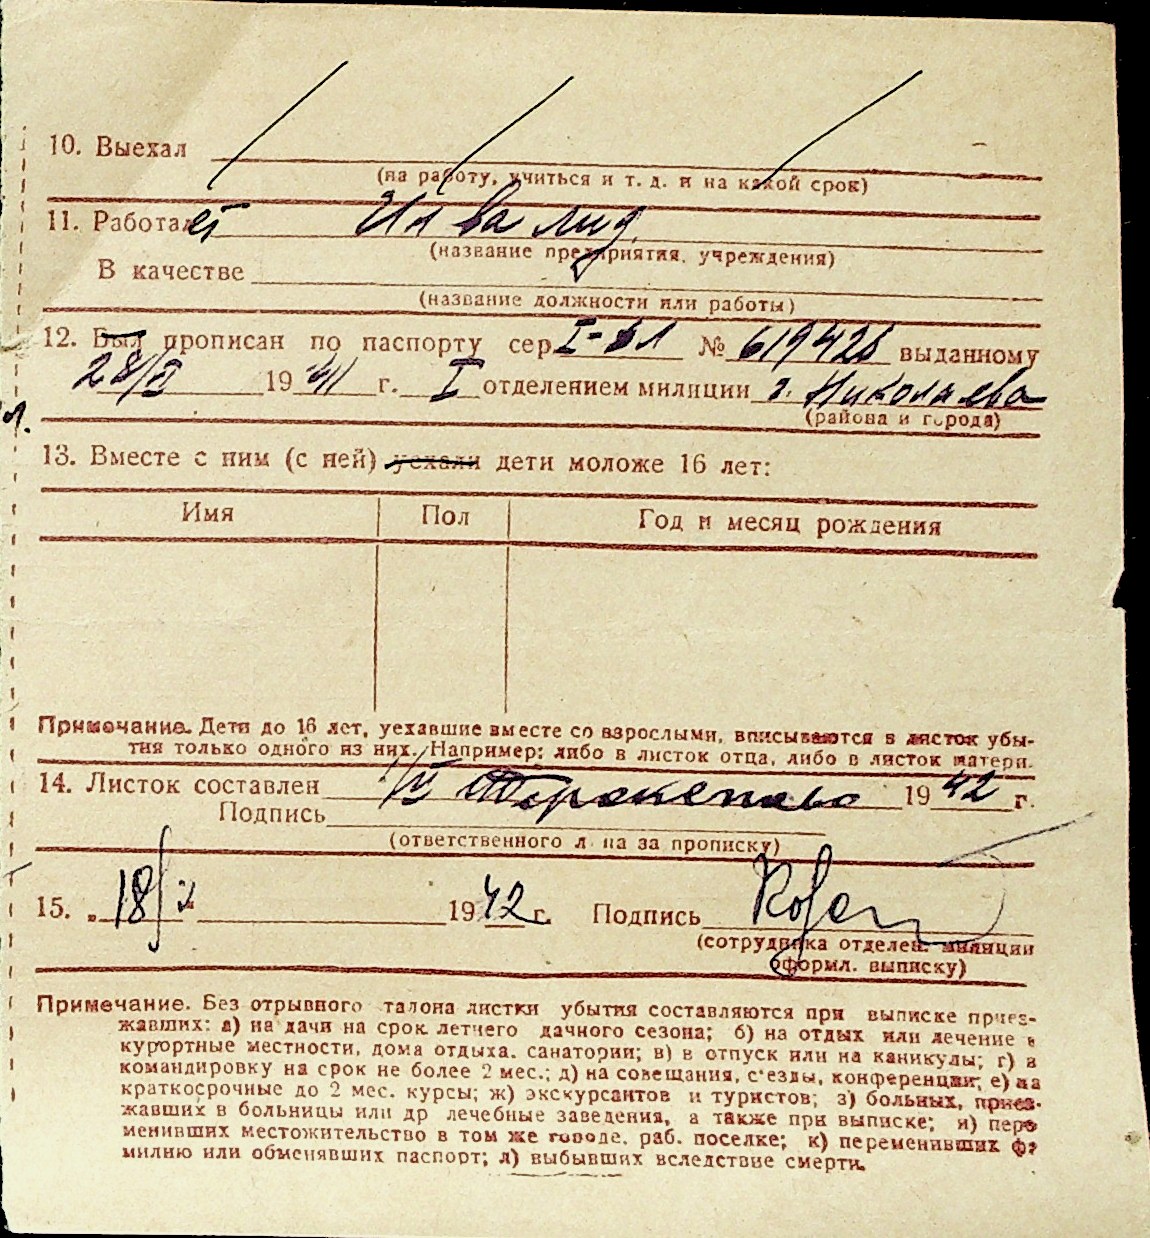 10. Выехал
(на работу, учиться и т. д. и на какой срок)
11. Работает Инвалид
(название предприятия, учреждения)
В качестве
(название должности или работы)
12. Был прописан по паспорту сер. I-БЛ № 619428 выданному
28/II 1941 г. I отделением милиции г. Николаева
(района и города)
13. Вместе с ним (с ней) уехали дети моложе 16 лет:
Имя Пол Год и месяц рождения
Примечание. Дети до 16 лет, уехавшие вместе со взрослыми, вписываются в листок убы-
тия только одного из них. Например: либо в листок отца, либо в листок матери.
14. Листок составлен 1942 г.
Подпись
(ответственного лица за прописку)
15. „18/X 1942 г. Подпись
(сотрудника отделен. милиции
оформл. выписку)
Примечание. Без отрывного талона листки убытия составляются при выписке приез-
жавших: а) на дачи на срок летнего дачного сезона; б) на отдых или лечение в
курортные местности, дома отдыха, санатории; в) в отпуск или на каникулы; г) в
командировку на срок не более 2 мес.; д) на совещания, с'езды, конференции; е) на
краткосрочные до 2 мес. курсы; ж) экскурсантов и туристов; з) больных, приез-
жавших в больницы или др лечебные заведения, а также при выписке; и) пере
менивших местожительство в том же городе, раб. поселке; к) переменивших фа
милию или обменявших паспорт; л) выбывших вследствие смерти.